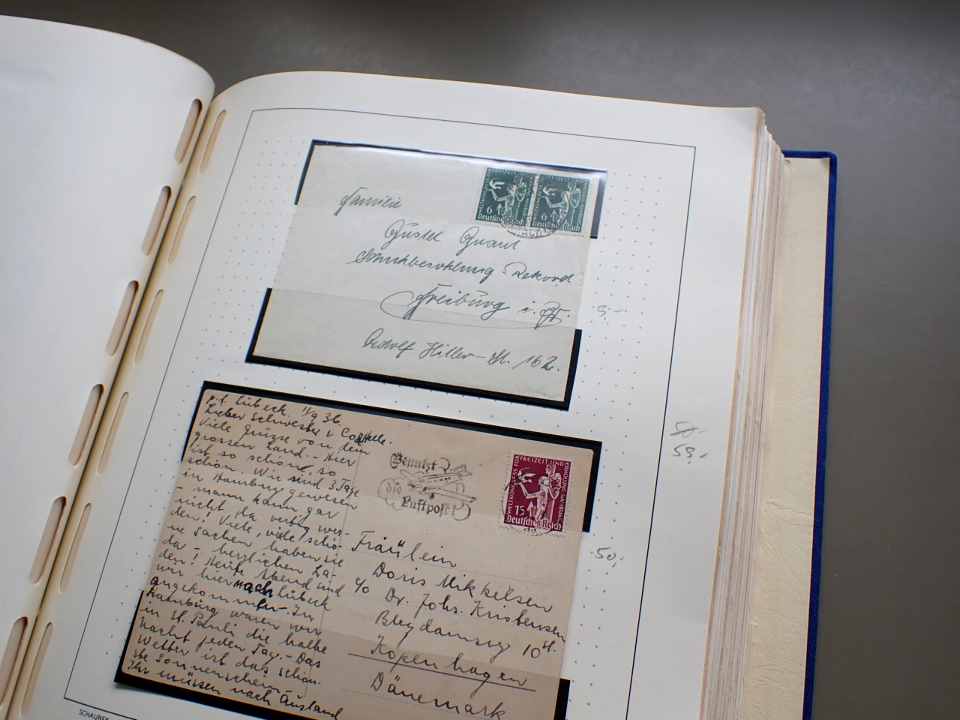 Familie
Gustel Quant
Schuhbesohlung Rekord
Freiburg i. Br.
Adolf Hitler-St. 162.
6
6
Deutsches Reich
Deutsches Reich
5,-
p.t. Lübeck. 11/9 36.
Lieber Schwester &
Viele Grüsse von dem
grossen Land - Hier
ist so schön, so
schön. Wir sind 3 Tage
in Hamburg gewesen
mann kann gar
nicht, da fertig wer-
den! Viele, viele schö-
ne sachen haben sie
da - herzlichen
Heute Abend sind
wir hier nach Lübeck
angekommen - In
Hamburg waren wir
in St. Pauli die halbe
Nacht jeden Tag - Das
Wetter ist das schön-
ste Sonnenschein
Ihr müssen nach Ausland
Benutzt
die
Luftpost
WELTKONGRESS FÜR FREIZEIT UND ERHOLUNG HAMBURG
15
Deutsches Reich
Fräulein
Doris Mikkelsen
c/o Dr. Johs. Kristensen
Blegdamsvej 104.
Kopenhagen
Dänemark
50,-
55,-
SCHAUBEK